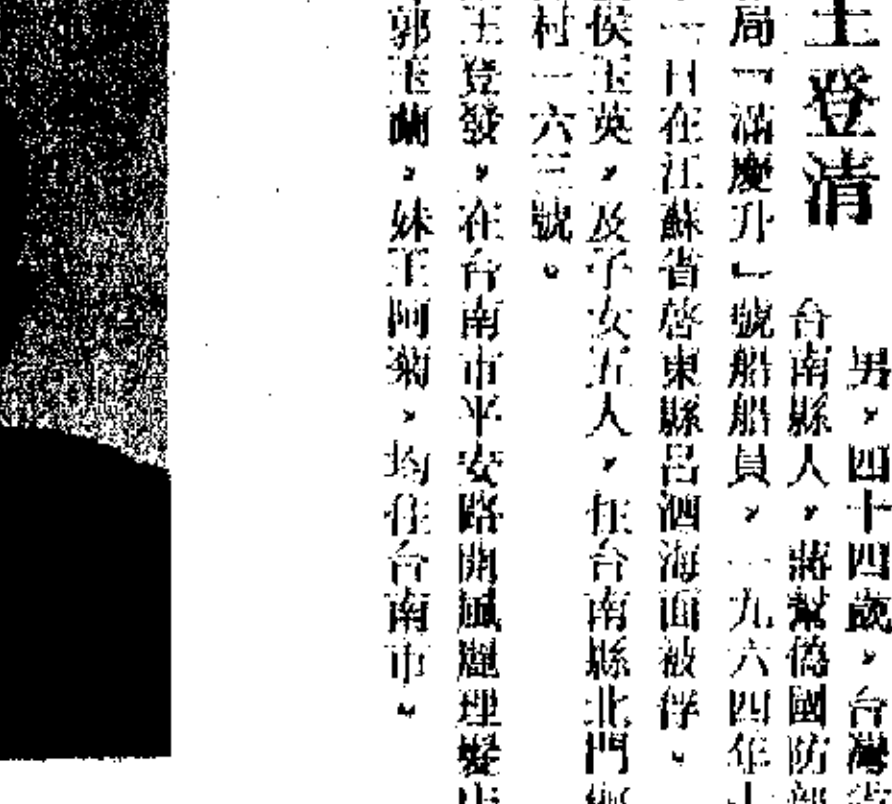 王登清
男，四十四歲，台灣省
台南縣人，蔣幫偽國防部
局「滿慶升」號船船員，一九六四年十
一日在江蘇省啓東縣呂泗海面被俘。
侯玉英，及子女五人，住台南縣北門鄉
村一六三號。
王登發，在台南市平安路開鳳麗理髮店
郭玉蘭，妹王阿菊，均住台南市。